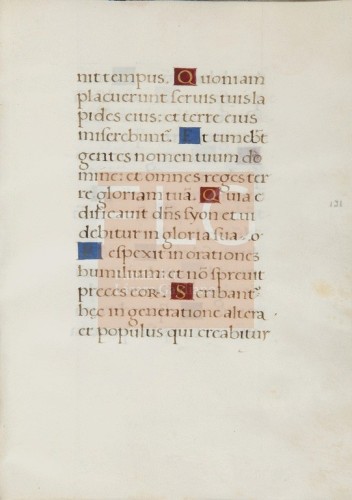 nit tempus. Quoniam
placuerunt seruis tuis la
pides eius: et terre eius
miserebunt͛. Et timeb̄t
gentes nomen tuum do
mine: et omnes reges ter
re gloriam tuā. Quia e
dificauit dn̄s syon et ui
debitur in gloria sua.
Respexit in orationes
humilium: et nō spreuit
preces eor. Scribant͛
hec in generatione altera
et populus qui creabitur
121
FLC